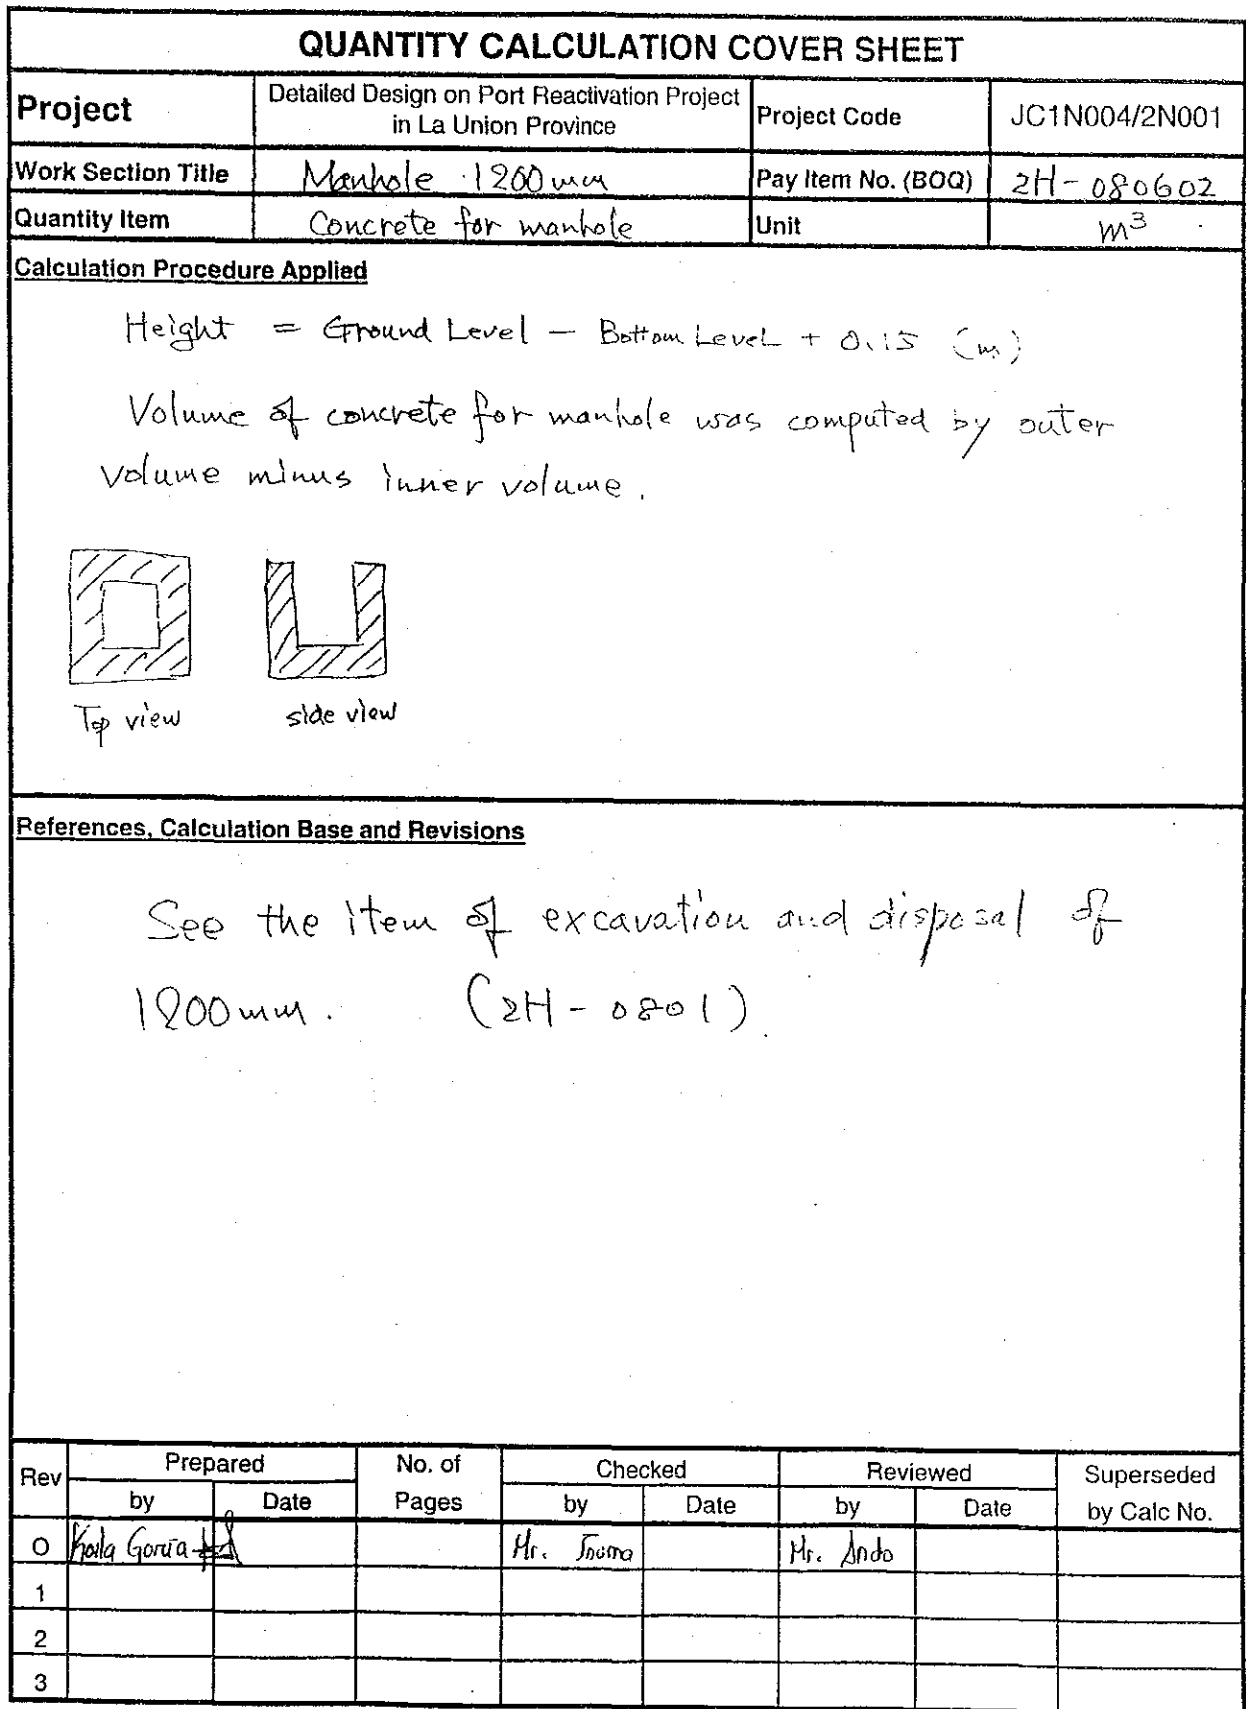 QUANTITY CALCULATION COVER SHEET
Project
Detailed Design on Port Reactivation Project
in La Union Province
Project Code
JC1N004/2N001
Work Section Title
Manhole 1200mm
Pay Item No. (BOQ)
2H-080602
Quantity Item
Concrete for manhole
Unit
m³
Calculation Procedure Applied
Height = Ground Level - Bottom Level + 0.15 (m)
Volume of concrete for manhole was computed by outer
volume minus inner volume.
Top view side view
References, Calculation Base and Revisions
See the item of excavation and disposal of
1200mm. (2H-0801)
Rev Prepared No. of Checked Reviewed Superseded
by Date Pages by Date by Date by Calc No.
0 Mr. Mr. Ando
1
2
3